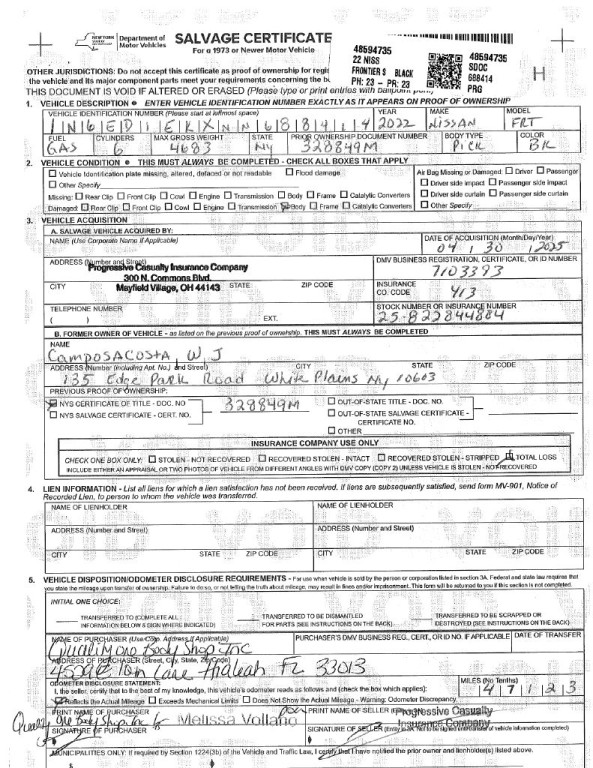 NEW YORK STATE Department of Motor Vehicles
SALVAGE CERTIFICATE
For a 1973 or Newer Motor Vehicle
48594735
22 NISS
FRONTIER S BLACK
PH: 23 - PR: 23
48594735
SDOC
688414
PRG
H
OTHER JURISDICTIONS: Do not accept this certificate as proof of ownership for regis
the vehicle and its major component parts meet your requirements concerning the bu
THIS DOCUMENT IS VOID IF ALTERED OR ERASED (Please type or print entries with ballpoint pen)
1. VEHICLE DESCRIPTION • ENTER VEHICLE IDENTIFICATION NUMBER EXACTLY AS IT APPEARS ON PROOF OF OWNERSHIP
VEHICLE IDENTIFICATION NUMBER (Please start at leftmost space) YEAR MAKE MODEL
1N6ED1EKXNN688414 2022 NISSAN FRT
FUEL CYLINDERS MAX GROSS WEIGHT STATE PRIOR OWNERSHIP DOCUMENT NUMBER BODY TYPE COLOR
GAS 6 4683 NY 328849M PICK BK
2. VEHICLE CONDITION • THIS MUST ALWAYS BE COMPLETED - CHECK ALL BOXES THAT APPLY
Vehicle Identification plate missing, altered, defaced or not readable Flood damage
Air Bag Missing or Damaged: Driver Passenger
Other Specify
Driver side impact Passenger side impact
Missing: Rear Clip Front Clip Cowl Engine Transmission Body Frame Catalytic Converters
Driver side curtain Passenger side curtain
Damaged: Rear Clip Front Clip Cowl Engine Transmission Body Frame Catalytic Converters
Other Specify
3. VEHICLE ACQUISITION
A. SALVAGE VEHICLE ACQUIRED BY:
NAME (Use Corporate Name if Applicable)
DATE OF ACQUISITION (Month/Day/Year)
04 30 2025
ADDRESS (Number and Street)
Progressive Casualty Insurance Company
300 N. Commons Blvd.
Mayfield Village, OH 44143
DMV BUSINESS REGISTRATION, CERTIFICATE, OR ID NUMBER
7103393
CITY STATE ZIP CODE
INSURANCE CO. CODE 413
TELEPHONE NUMBER
( ) EXT.
STOCK NUMBER OR INSURANCE NUMBER
25-822844884
B. FORMER OWNER OF VEHICLE - as listed on the previous proof of ownership. THIS MUST ALWAYS BE COMPLETED
NAME
CamposAcosta, W J
ADDRESS (Number including Apt. No.) and Street) CITY STATE ZIP CODE
135 Edge Park Road White Plains NY 10603
PREVIOUS PROOF OF OWNERSHIP:
NYS CERTIFICATE OF TITLE - DOC. NO. 328849M
OUT-OF-STATE TITLE - DOC. NO.
NYS SALVAGE CERTIFICATE - CERT. NO.
OUT-OF-STATE SALVAGE CERTIFICATE - CERTIFICATE NO.
OTHER
INSURANCE COMPANY USE ONLY
CHECK ONE BOX ONLY: STOLEN - NOT RECOVERED RECOVERED STOLEN - INTACT RECOVERED STOLEN - STRIPPED TOTAL LOSS
INCLUDE EITHER AN APPRAISAL OR TWO PHOTOS OF VEHICLE FROM DIFFERENT ANGLES WITH DMV COPY (COPY 2) UNLESS VEHICLE IS STOLEN - NOT RECOVERED
4. LIEN INFORMATION - List all liens for which a lien satisfaction has not been received. If liens are subsequently satisfied, send form MV-901, Notice of
Recorded Lien, to person to whom the vehicle was transferred.
NAME OF LIENHOLDER NAME OF LIENHOLDER
ADDRESS (Number and Street) ADDRESS (Number and Street)
CITY STATE ZIP CODE CITY STATE ZIP CODE
5. VEHICLE DISPOSITION/ODOMETER DISCLOSURE REQUIREMENTS - For use when vehicle is sold by the person or corporation listed in section 3A. Federal and state law requires that
you state the mileage upon transfer of ownership. Failure to do so, or not telling the truth about mileage, may result in fines and/or imprisonment. This form will be returned to you if this section is not completed.
INITIAL ONE CHOICE:
TRANSFERRED TO (COMPLETE ALL INFORMATION BELOW & SIGN WHERE INDICATED)
TRANSFERRED TO BE DISMANTLED FOR PARTS (SEE INSTRUCTIONS ON THE BACK)
TRANSFERRED TO BE SCRAPPED OR DESTROYED (SEE INSTRUCTIONS ON THE BACK)
NAME OF PURCHASER (Use Corp. Address if Applicable) PURCHASER'S DMV BUSINESS REG., CERT., OR ID NO. IF APPLICABLE DATE OF TRANSFER
Body Shop Inc
ADDRESS OF PURCHASER (Street, City, State, Zip Code)
Hialeah FL 33013
ODOMETER DISCLOSURE STATEMENT:
I, the seller, certify to the best of my knowledge, this vehicle's odometer reads as follows and (check the box which applies):
MILES (No Tenths)
47123
Reflects the Actual Mileage Exceeds Mechanical Limits Does Not Show the Actual Mileage - Warning: Odometer Discrepancy.
PRINT NAME OF PURCHASER
Body Shop Inc Melissa Vollano
PRINT NAME OF SELLER
Progressive Casualty
Insurance Company
SIGNATURE OF PURCHASER
SIGNATURE OF SELLER
MUNICIPALITIES ONLY: If required by Section 1224(3b) of the Vehicle and Traffic Law, I certify that I have notified the prior owner and lienholder(s) listed above.